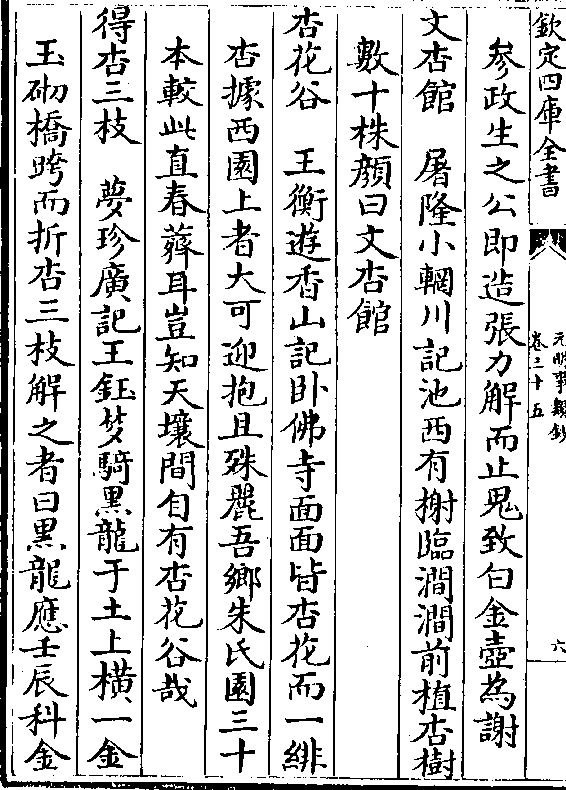 欽定四庫全書
元明事類鈔
卷三十五
六
參政生之公即造張力解而止鬼致白金壺為謝
文杏館　屠隆小輞川記池西有榭臨澗澗前植杏樹
數十株顔曰文杏館
杏花谷　王衡遊香山記卧佛寺面面皆杏花而一緋
杏據西園上者大可迎抱且殊麗吾鄉朱氏園三十
本較此直舂薺耳豈知天壤間自有杏花谷哉
得杏三枝　夢珍廣記王鈺夢騎黑龍于土上横一金
玉砌橋跨而折杏三枝解之者曰黑龍應壬辰科金